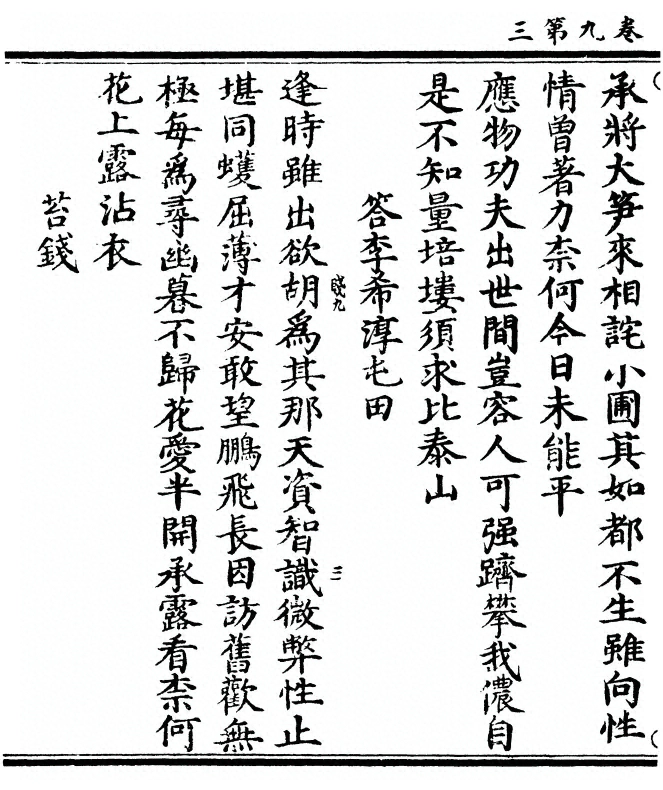 卷九第三
承將大笋來相詫小圃其如都不生雖向性
情曾著力柰何今日未能平
應物功夫出世間豈容人可强躋攀我儂自
是不知量培塿須求比泰山
答李希淳屯田
逢時雖出欲胡爲其那天資智識微弊性止
堪同蠖屈薄才安敢望鵬飛長因訪舊歡無
極每爲尋幽暮不歸花愛半開承露看柰何
花上露沾衣
苔錢
三